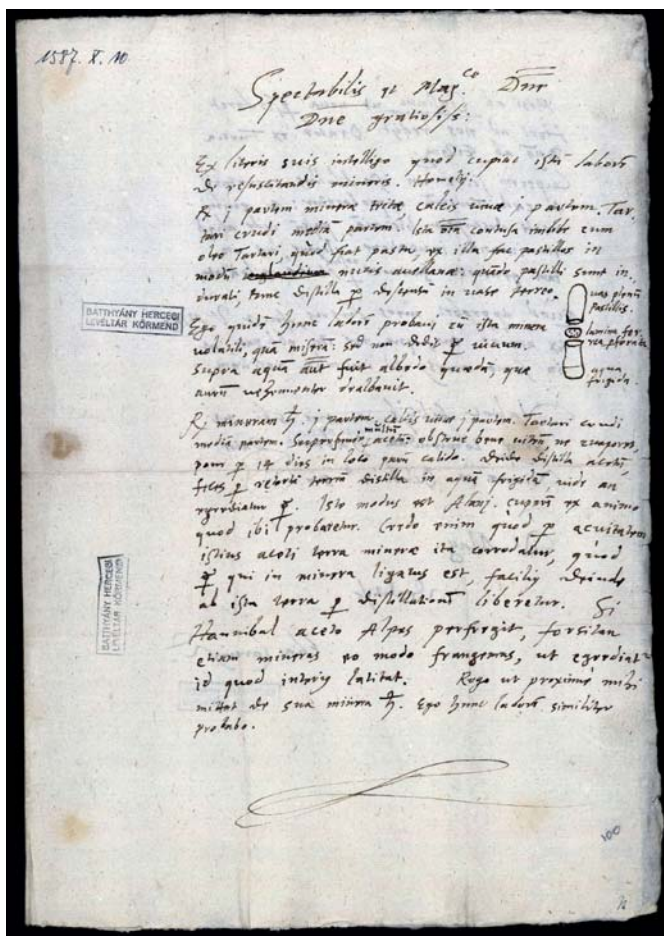 1587. X. 10.
Spectabilis et Mag.ce Dne
Dne gratiosiss:
Ex literis suis intelligo quod cupiat istū laborē
de resuscitandis mineris. Homelij.
Rx j partem minerae tritae calcis vivae j partem. Tar-
tari crudi mediā partem. Ista oīa contusa imbibe cum
oleo Tartari, quod fiat pasta, ex illa fac pastillas in
modū nucis avellanae: quādo pastilli sunt in-
durati, tunc distilla p descensū in vase terreo.
vas plenū
Pastillis.
lamina fer-
rea pforata
aqua
frigida.
BATTHYÁNY HERCEGI
LEVÉLTÁR KÖRMEND
Ego quidē hunc laborē probavi cū ista minera
volatili, quā miserā: sed non dedit ☿ vivum.
Supra aquā aūt fuit albedo quaedā, quae
aurū vehementer dealbavit.
Rx mineram ♄. j partem, calcis vivae j partem. Tartari crudi
mediā partem. Superfunde multū acetū: obstrue bene vitrū ne evaporet,
pone p 14 dies in loco parū calido. Deinde distilla acetū,
feces p retortā terreā distilla in aquā frigidā vide an
egrediatur ☿. Iste modus est Alani. cuperē ex animo
quod ibi probaretur. Credo enim quod p acuitatem
istius aceti terra minerae ita corrodatur, quod
☿ qui in minera ligatus est, facilius deinde
ab ista terra p distillationē liberetur. Si
Hannibal aceto Alpes perfregit, forsitan
etiam mineras eo modo frangemus, ut egrediatur
id quod interius latitat. Rogo ut proximē mihi
mittat de sua minera ♄. Ego hunc laborē similiter
probabo.
BATTHYÁNY HERCEGI
LEVÉLTÁR KÖRMEND
100